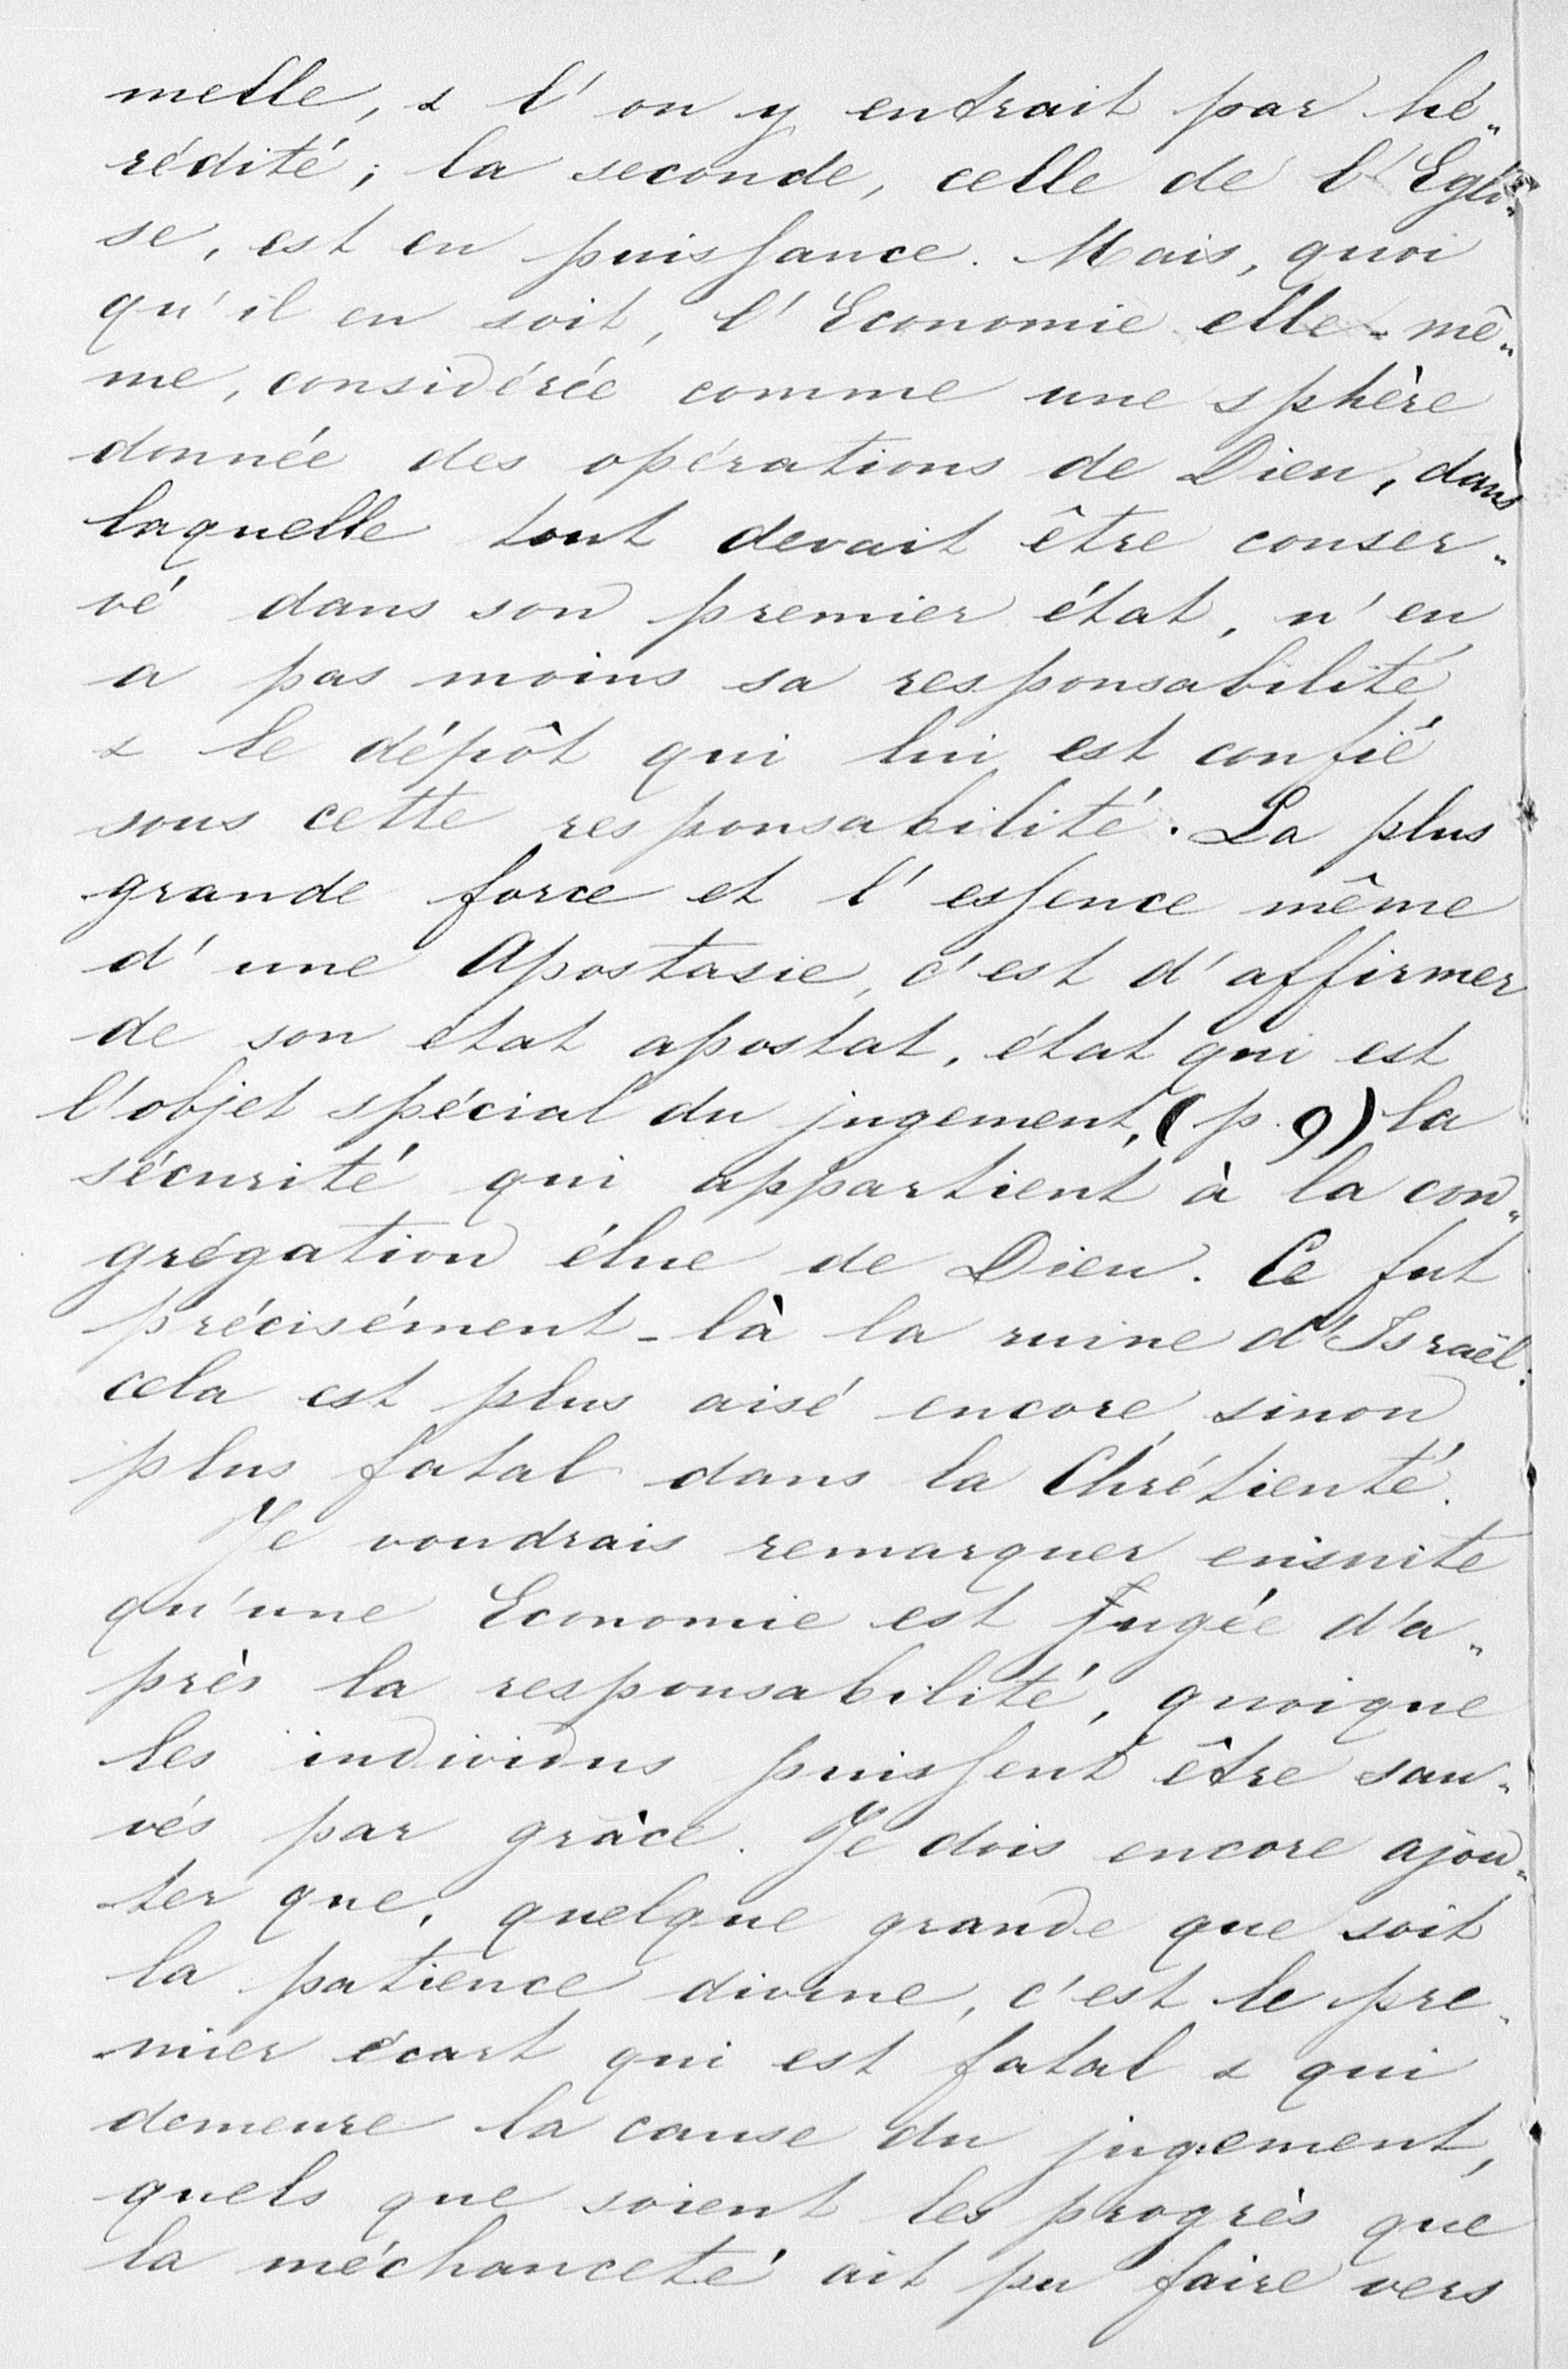 melle, & l'on y entrait par hé-
rédité; la seconde, celle de l'Egli-
se, est en puissance. Mais, quoi
qu'il en soit, l'Economie elle-mê-
me, considérée comme une sphère
donnée des opérations de Dieu, dans
laquelle tout devait être conser-
vé dans son premier état, n'en
a pas moins sa responsabilité
& le dépôt qui lui est confié
sous cette responsabilité. La plus
grande force et l'essence même
d'une Apostasie, c'est d'affirmer
de son état apostat, état qui est
l'objet spécial du jugement, (p. 9) la
sécurité qui appartient à la con-
grégation élue de Dieu. Ce fut
précisément-là la ruine d'Israël:
cela est plus aisé encore, sinon
plus fatal dans la Chrétienté.
Je voudrais remarquer ensuite
qu'une Economie est Jugée d'a-
près la responsabilité, quoique
les individus puissent être sau-
vés par grâce. Je dois encore ajou-
ter que, quelque grande que soit
la patience divine, c'est le pre-
mier écart qui est fatal & qui
demeure la cause du jugement,
quels que soient les progrès que
la méchanceté ait pu faire vers